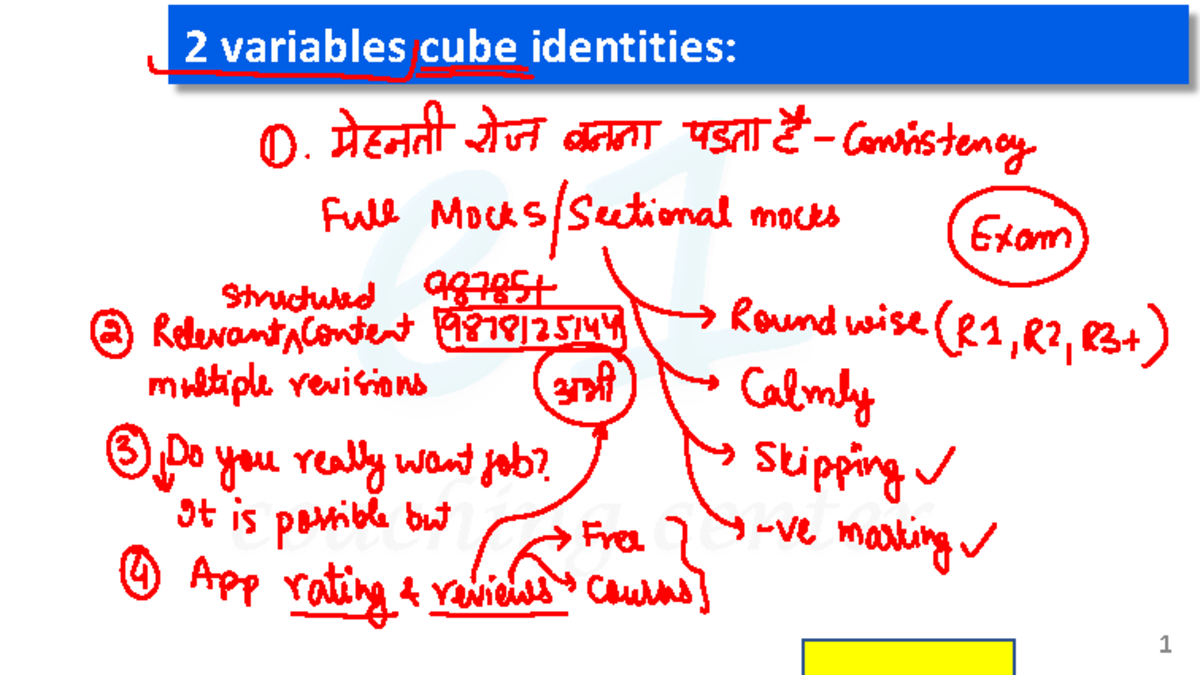 2 variables cube identities:
①. मेहनती रोज बनना पडता है - Consistency
Full Mocks/Sectional mocks
Exam
987851
Structured
② Relevant Content 9878125144
multiple revisions
अभी
Round wise (R1, R2, R3+)
Calmly
Skipping ✓
-ve marking ✓
③ Do you really want job?
It is possible but
④ App rating & reviews
Free
Courses
e1
coaching center
1